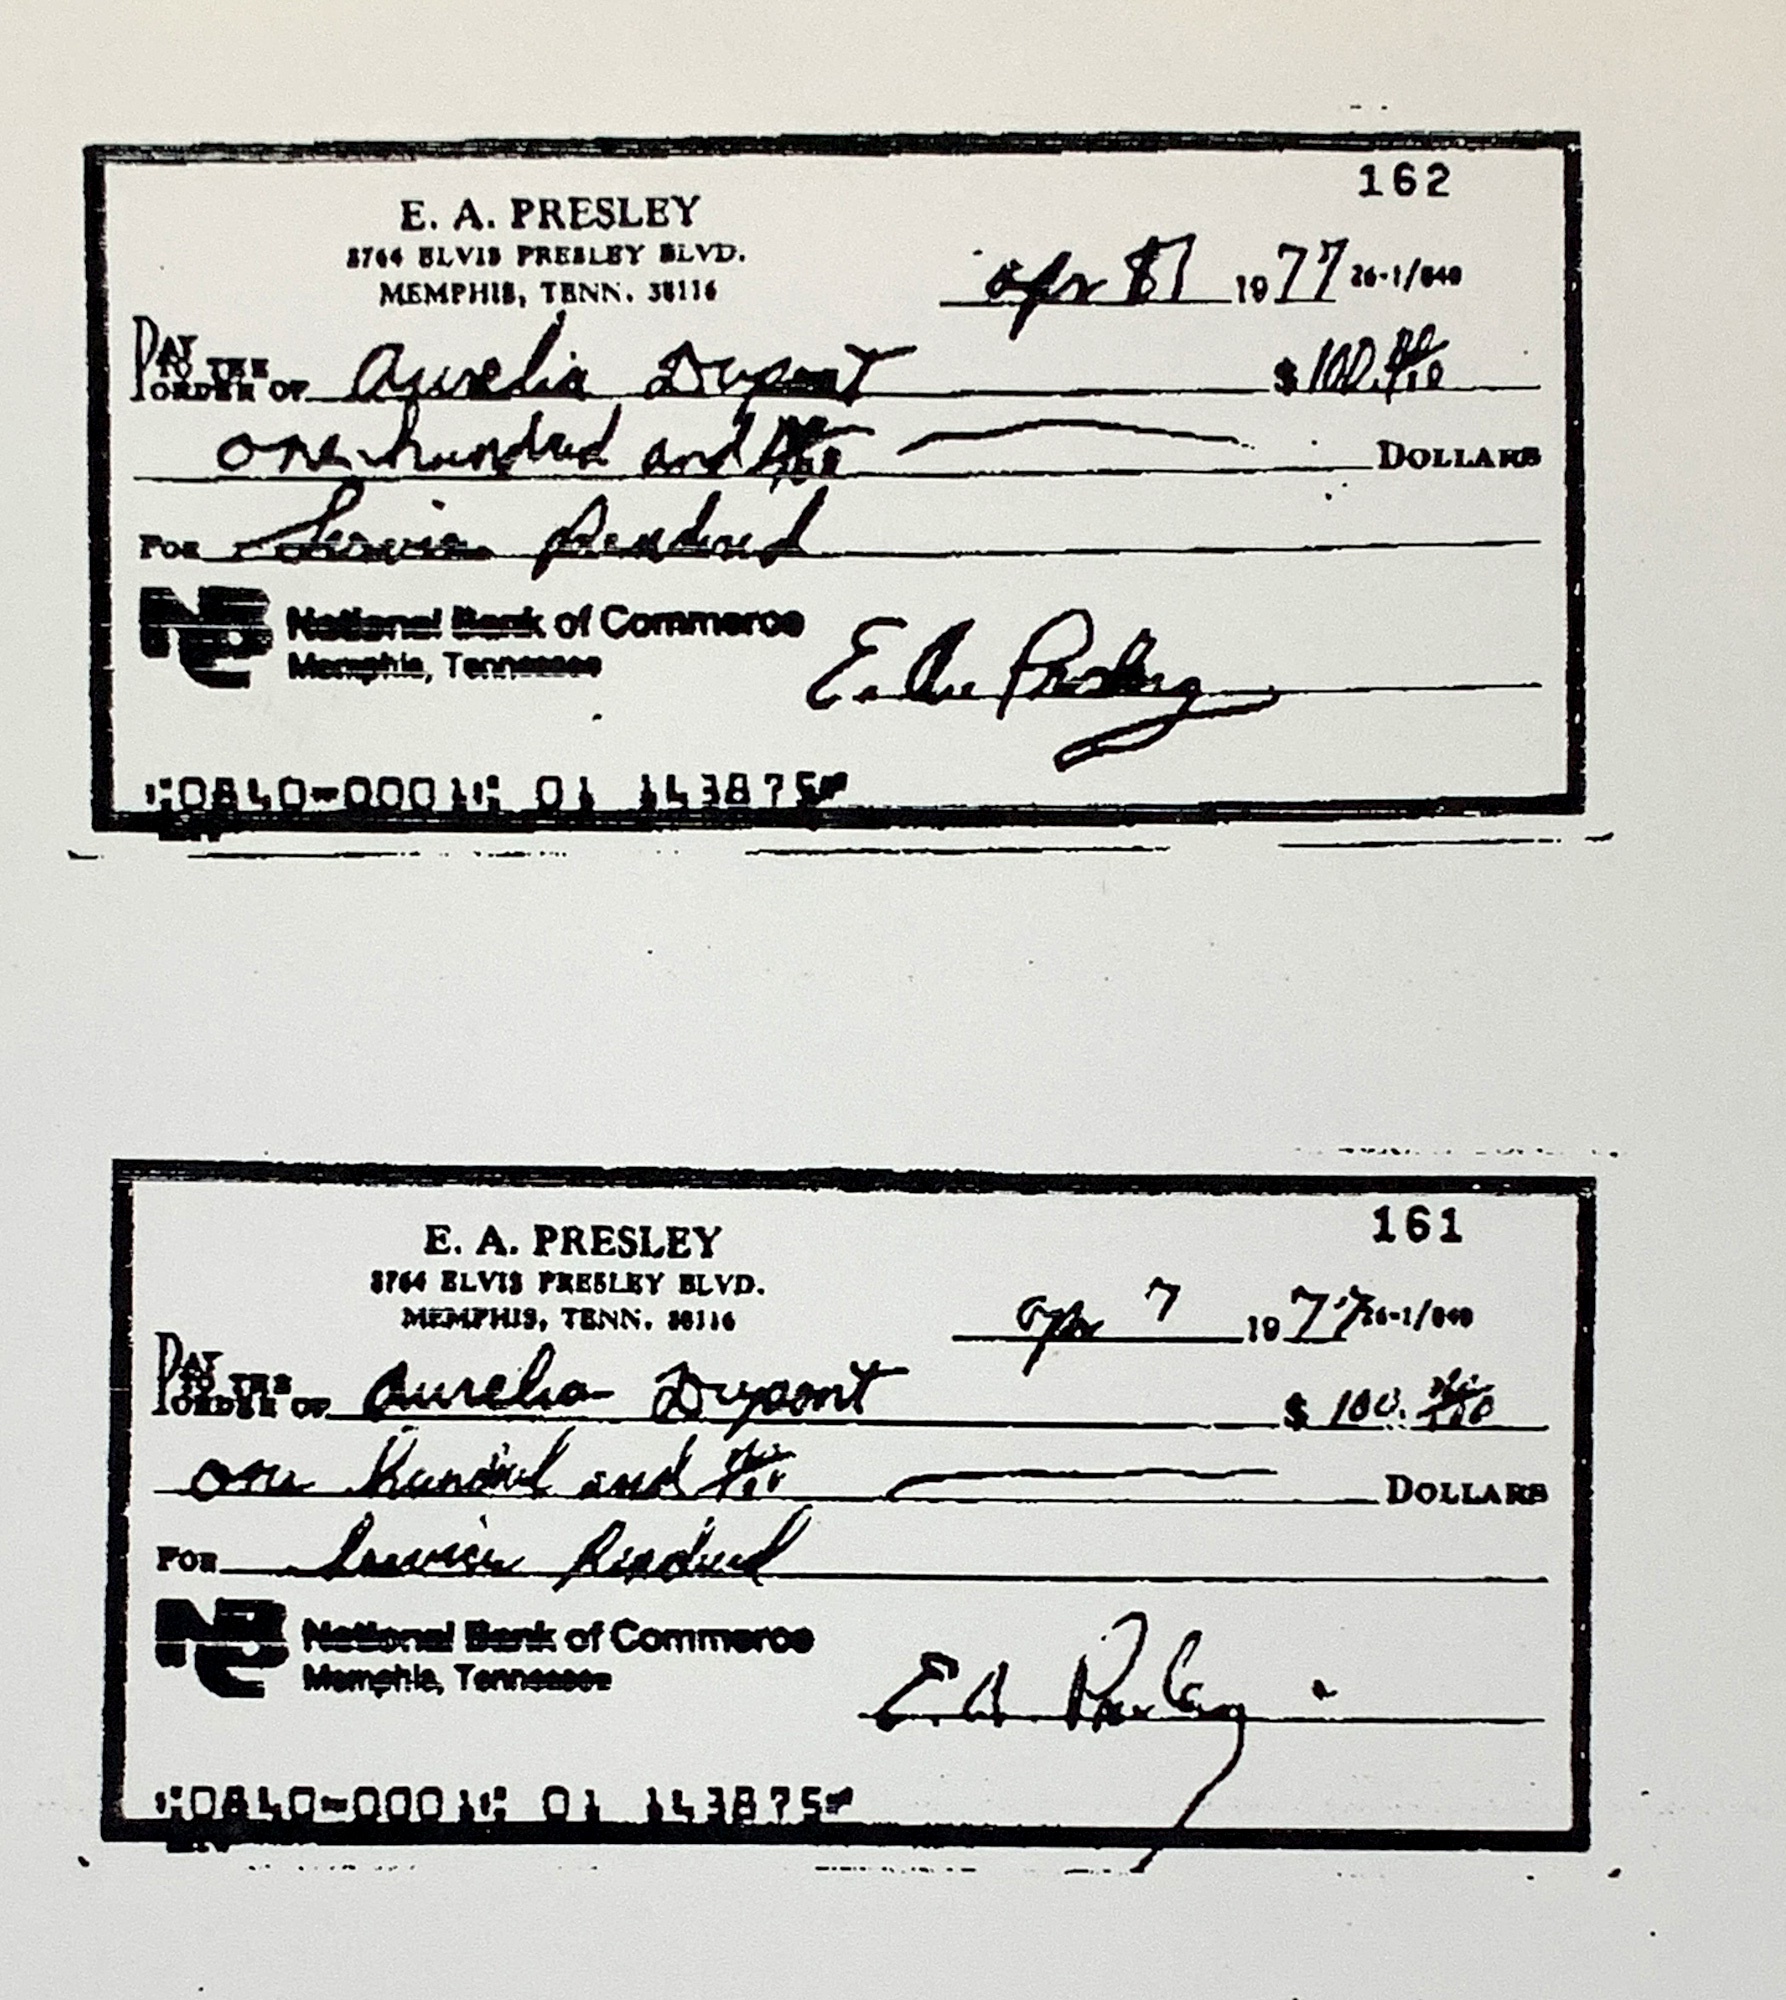 162
E. A. PRESLEY
3764 ELVIS PRESLEY BLVD.
MEMPHIS, TENN. 38116
apr 1977 26-1/840
PAY TO THE ORDER OF Aurelia Dupont $100.
one hundred and DOLLARS
FOR Service Rendered
NBC National Bank of Commerce
Memphis, Tennessee
E. A. Presley
⑆0840-0001⑆ 01 143875⑈
161
E. A. PRESLEY
3764 ELVIS PRESLEY BLVD.
MEMPHIS, TENN. 38116
apr 7 1977 26-1/840
PAY TO THE ORDER OF Aurelia Dupont $ 100.
one hundred and DOLLARS
FOR Service Rendered
NBC National Bank of Commerce
Memphis, Tennessee
E. A. Presley
⑆0840-0001⑆ 01 143875⑈